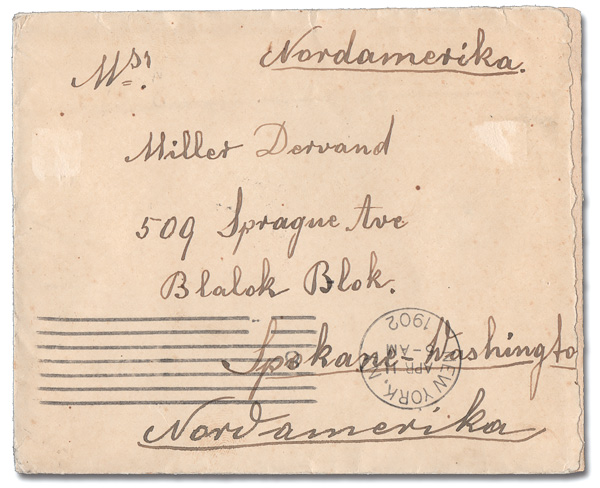 Nordamerika.
Msr.
Miller Dervand
509 Sprague Ave
Blalok Blok.
Spokane-Washingto
Nordamerika
NEW YORK, N.
APR 11
6-AM
1902